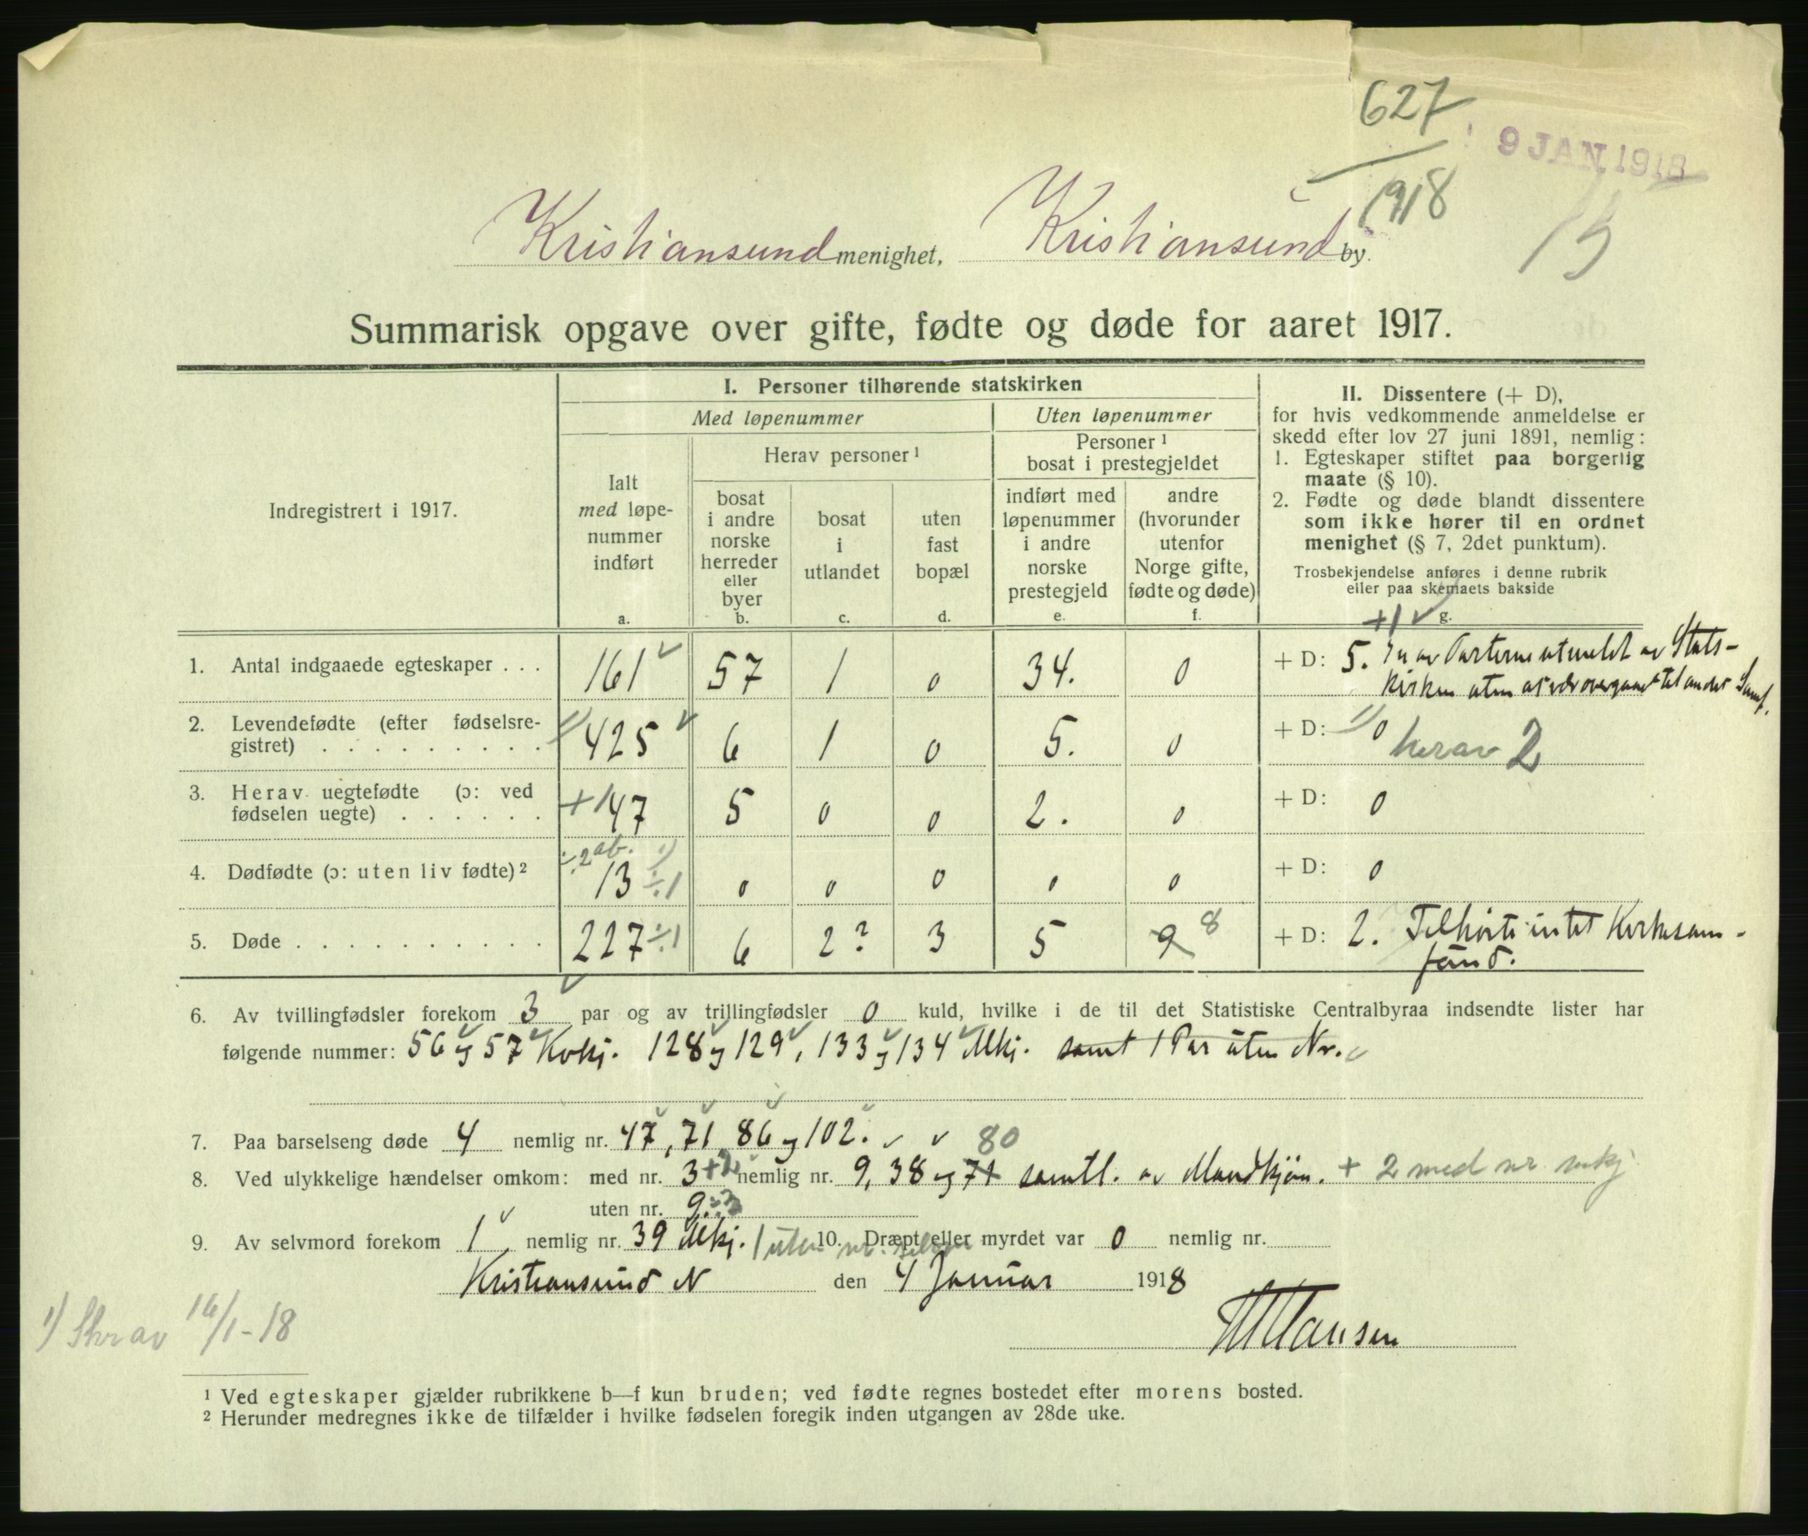 627
9 JAN 1918
1918
Kristiansund menighet, Kristiansund by.
Summarisk opgave over gifte, fødte og døde for aaret 1917.
Indregistrert i 1917.
I. Personer tilhørende statskirken
Med løpenummer
Uten løpenummer
Ialt med løpe-nummer indført
a.
Herav personer ¹
bosat i andre norske herreder eller byer
b.
bosat i utlandet
c.
uten fast bopæl
d.
Personer ¹ bosat i prestegjeldet
indført med løpenummer i andre norske prestegjeld
e.
andre (hvorunder utenfor Norge gifte, fødte og døde)
f.
II. Dissentere (+ D),
for hvis vedkommende anmeldelse er
skedd efter lov 27 juni 1891, nemlig:
1. Egteskaper stiftet paa borgerlig
maate (§ 10).
2. Fødte og døde blandt dissentere
som ikke hører til en ordnet
menighet (§ 7, 2det punktum).
Trosbekjendelse anføres i denne rubrik
eller paa skemaets bakside
+1 g.
1. Antal indgaaede egteskaper . . . 161 57 1 0 34. 0 + D: 5. av Parterne utmeldt av Stats-
kirken uten at være overgaaet til andet Samf.
2. Levendefødte (efter fødselsre-
gistret) . . . . . . . . . 1) 425 6 1 0 5. 0 + D: 1) 0 herav 2
3. Herav uegtefødte (ɔ: ved
fødselen uegte) . . . . . . +1 47 5 0 0 2. 0 + D: 0
÷2 ab. 1)
4. Dødfødte (ɔ: uten liv fødte) ² 13 ÷1 0 0 0 0 0 + D: 0
5. Døde . . . . . . . . . . 227 ÷1 6 2? 3 5 9 8 + D: 2. Tilhørte intet Kirkesam-
fund.
6. Av tvillingfødsler forekom 3 par og av trillingfødsler 0 kuld, hvilke i de til det Statistiske Centralbyraa indsendte lister har
følgende nummer: 56 og 57 Kvkj. 128 og 129, 133 og 134 Mkj. samt 1 Par uten Nr.
7. Paa barselseng døde 4 nemlig nr. 47, 71, 86 og 102.
80
8. Ved ulykkelige hændelser omkom: med nr. 3 +2 nemlig nr. 9, 38 og 71 samtl. av Mandkjøn. + 2 med nr mkj
uten nr. 9 ÷3
9. Av selvmord forekom 1 nemlig nr. 39 Mkj. 1 uten nr. 10. Dræpt eller myrdet var 0 nemlig nr.
Kristiansund N den 4 Januar 1918
1) Skrav 16/1-18
¹ Ved egteskaper gjælder rubrikkene b—f kun bruden; ved fødte regnes bostedet efter morens bosted.
² Herunder medregnes ikke de tilfælder i hvilke fødselen foregik inden utgangen av 28de uke.